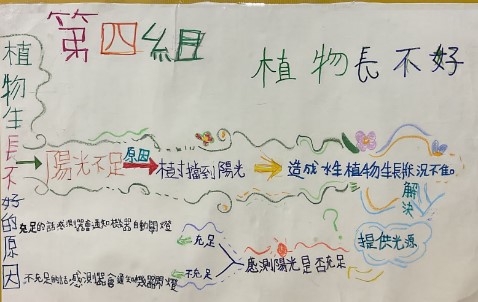 第四組
植物長不好
植物生長不好的原因
陽光不足
原因
植討擋到陽光
造成水生植物生長狀況不佳。
解決
提供光源
感測陽光是否充足
充足
不充足
充足的話感測器會通知機器自動關燈
不充足的話感測器會通知機器開燈